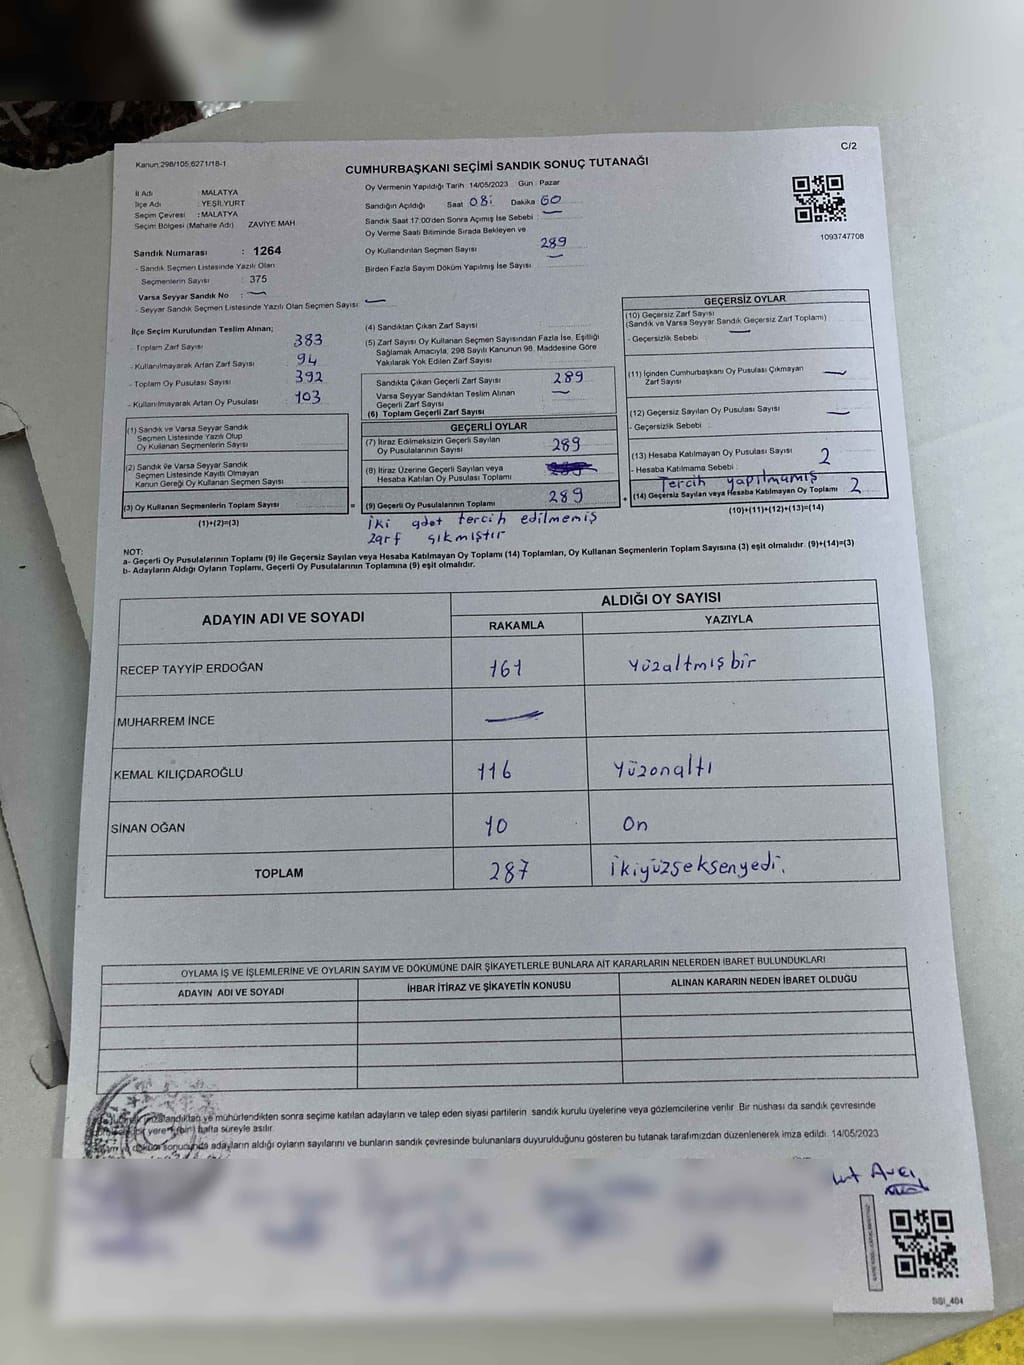 Kanun:298/105;6271/18-1
C/2
CUMHURBAŞKANI SEÇİMİ SANDIK SONUÇ TUTANAĞI
İl Adı : MALATYA
İlçe Adı : YEŞİLYURT
Seçim Çevresi : MALATYA
Seçim Bölgesi (Mahalle Adı) ZAVİYE MAH
Sandık Numarası : 1264
- Sandık Seçmen Listesinde Yazılı Olan
Seçmenlerin Sayısı : 375
Varsa Seyyar Sandık No : —
- Seyyar Sandık Seçmen Listesinde Yazılı Olan Seçmen Sayısı : —
Oy Vermenin Yapıldığı Tarih : 14/05/2023 Gün : Pazar
Sandığın Açıldığı Saat 08: Dakika 00
Sandık Saat 17:00'den Sonra Açımış İse Sebebi : —
Oy Verme Saati Bitiminde Sırada Bekleyen ve
Oy Kullandırılan Seçmen Sayısı 289
Birden Fazla Sayım Döküm Yapılmış İse Sayısı : —
1093747708
İlçe Seçim Kurulundan Teslim Alınan;
- Toplam Zarf Sayısı 383
- Kullanılmayarak Artan Zarf Sayısı 94
- Toplam Oy Pusulası Sayısı 392
- Kullanılmayarak Artan Oy Pusulası 103
(1) Sandık ve Varsa Seyyar Sandık
Seçmen Listesinde Yazılı Olup
Oy Kullanan Seçmenlerin Sayısı
(2) Sandık ve Varsa Seyyar Sandık
Seçmen Listesinde Kayıtlı Olmayan
Kanun Gereği Oy Kullanan Seçmen Sayısı
(3) Oy Kullanan Seçmenlerin Toplam Sayısı
(1)+(2)=(3)
(4) Sandıktan Çıkan Zarf Sayısı
(5) Zarf Sayısı Oy Kullanan Seçmen Sayısından Fazla İse, Eşitliği
Sağlamak Amacıyla, 298 Sayılı Kanunun 98. Maddesine Göre
Yakılarak Yok Edilen Zarf Sayısı
Sandıkta Çıkan Geçerli Zarf Sayısı 289
Varsa Seyyar Sandıktan Teslim Alınan
Geçerli Zarf Sayısı —
(6) Toplam Geçerli Zarf Sayısı
GEÇERLİ OYLAR
(7) İtiraz Edilmeksizin Geçerli Sayılan
Oy Pusulasının Sayısı 289
(8) İtiraz Üzerine Geçerli Sayılan veya
Hesaba Katılan Oy Pusulası Toplamı
= (9) Geçerli Oy Pusulalarının Toplamı 289 +
iki adet tercih edilmemiş
zarf çıkmıştır
GEÇERSİZ OYLAR
(10) Geçersiz Zarf Sayısı
(Sandık ve Varsa Seyyar Sandık Geçersiz Zarf Toplamı)
- Geçersizlik Sebebi : —
(11) İçinden Cumhurbaşkanı Oy Pusulası Çıkmayan
Zarf Sayısı —
(12) Geçersiz Sayılan Oy Pusulası Sayısı —
- Geçersizlik Sebebi :
(13) Hesaba Katılmayan Oy Pusulası Sayısı 2
- Hesaba Katılmama Sebebi :
Tercih yapılmamış
(14) Geçersiz Sayılan veya Hesaba Katılmayan Oy Toplamı 2
(10)+(11)+(12)+(13)=(14)
NOT:
a- Geçerli Oy Pusulalarının Toplamı (9) ile Geçersiz Sayılan veya Hesaba Katılmayan Oy Toplamı (14) Toplamları, Oy Kullanan Seçmenlerin Toplam Sayısına (3) eşit olmalıdır. (9)+(14)=(3)
b- Adayların Aldığı Oyların Toplamı, Geçerli Oy Pusulalarının Toplamına (9) eşit olmalıdır.
ADAYIN ADI VE SOYADI
ALDIĞI OY SAYISI
RAKAMLA YAZIYLA
RECEP TAYYİP ERDOĞAN 161 Yüzaltmışbir
MUHARREM İNCE —
KEMAL KILIÇDAROĞLU 116 Yüzonaltı
SİNAN OĞAN 10 On
TOPLAM 287 İkiyüzseksenyedi.
OYLAMA İŞ VE İŞLEMLERİNE VE OYLARIN SAYIM VE DÖKÜMÜNE DAİR ŞİKAYETLERLE BUNLARA AİT KARARLARIN NELERDEN İBARET BULUNDUKLARI
ADAYIN ADI VE SOYADI İHBAR İTİRAZ VE ŞİKAYETİN KONUSU ALINAN KARARIN NEDEN İBARET OLDUĞU
imzalandıktan ve mühürlendikten sonra seçime katılan adayların ve talep eden siyasi partilerin sandık kurulu üyelerine veya gözlemcilerine verilir. Bir nüshası da sandık çevresinde
hafta süreyle asılır.
sonucunda adayların aldığı oyların sayılarını ve bunların sandık çevresinde bulunanlara duyurulduğunu gösteren bu tutanak tarafımızdan düzenlenerek imza edildi. 14/05/2023
Avcı
SSI_404